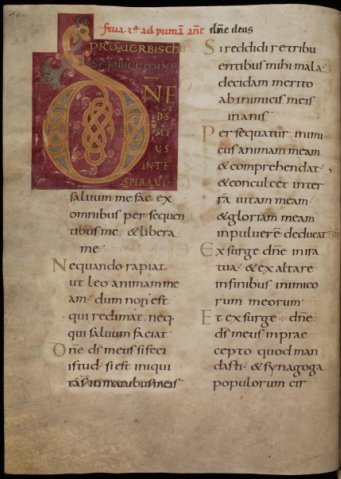 feria 2ª ad primā ant̄ dn̄e deus
PRO VERBIS CH
DNE
DS
ME
US
INTE
SPERAUI
saluum me fac ex
omnibus per sequen
tibus me & libera
me
Nequando rapiat
ut leo animam me
am dum non est
qui redimat neq;
qui saluum faciat
One ds meus si feci
istud si est iniqui
tas in manibus meis
Si reddidi retribu
entibus mihi mala
decidam merito
ab inimicis meis
inanis
Persequatur inimi
cus animam meam
& comprehendat
& conculcet in ter
ra uitam meam
& gloriam meam
in puluerē deducat
Exsurge dn̄e in ira
tua & exaltare
in finibus inimico
rum meorum
Et exsurge dn̄e
ds meus in prae
cepto quod man
dasti & synagoga
populorum cir